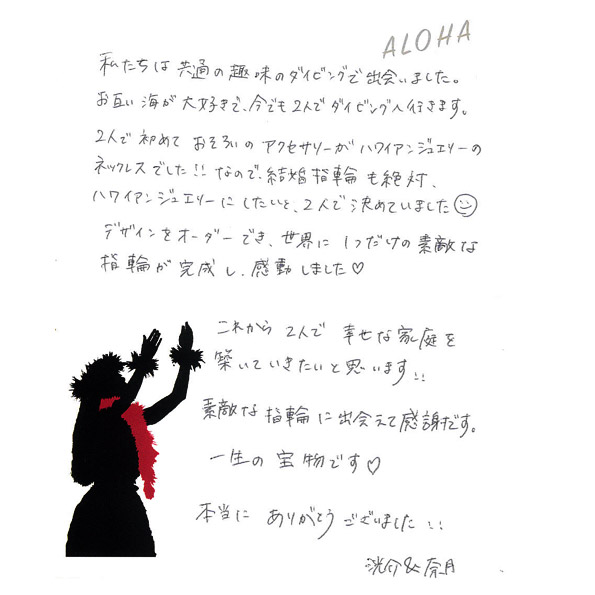 ALOHA
私たちは共通の趣味のダイビングで出会いました。
お互い海が大好きで、今でも2人でダイビングへ行きます。
2人で初めておそろいのアクセサリーがハワイアンジュエリーの
ネックレスでした!! なので、結婚指輪も絶対、
ハワイアンジュエリーにしたいと、2人で決めていました☺
デザインをオーダーでき、世界に1つだけの素敵な
指輪が完成し、感動しました♡
これから2人で幸せな家庭を
築いていきたいと思います!!
素敵な指輪に出会えて感謝です。
一生の宝物です♡
本当にありがとうございました!!
&